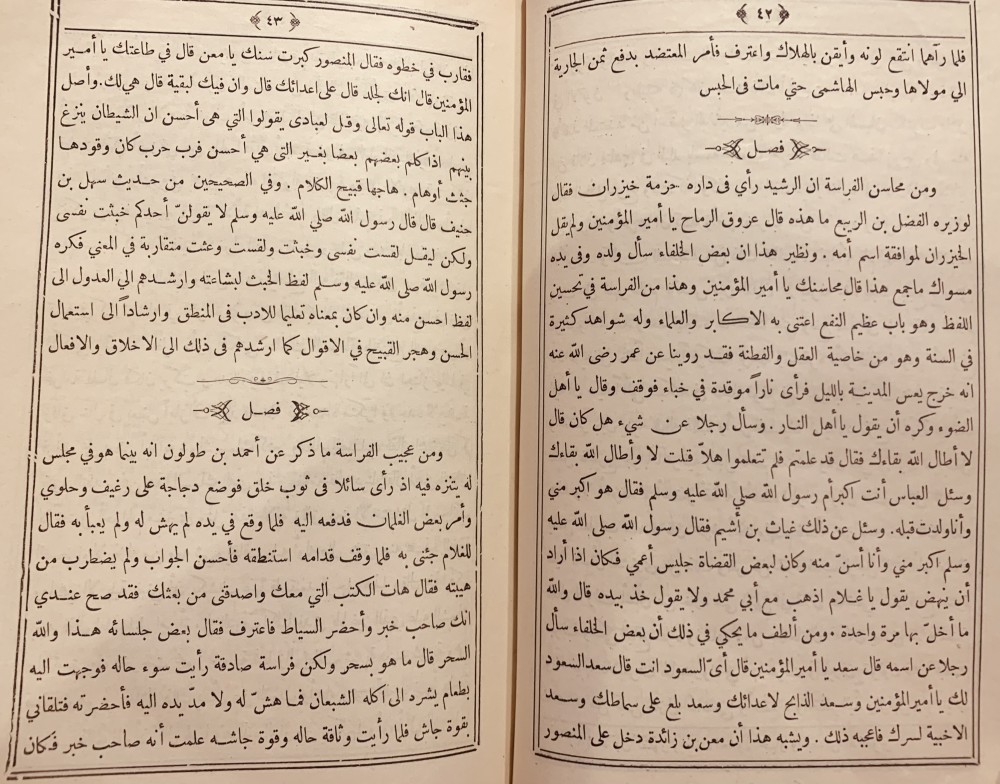 ﴿ ٤٢ ﴾
فلما رآهما انتقع لونه وأيقن بالهلاك واعترف فأمر المعتضد بدفع ثمن الجارية
الي مولاها وحبس الهاشمى حتي مات فى الحبس
فصل
ومن محاسن الفراسة ان الرشيد رأي فى داره حزمة خيزران فقال
لوزيره الفضل بن الربيع ما هذه قال عروق الرماح يا أمير المؤمنين ولم يقل
الخيزران لموافقة اسم أمه . ونظير هذا ان بعض الخلفاء سأل ولده وفى يده
مسواك ما جمع هذا قال محاسنك يا أمير المؤمنين وهذا من الفراسة في تحسين
اللفظ وهو باب عظيم النفع اعتنى به الاكابر والعلماء وله شواهد كثيرة
في السنة وهو من خاصية العقل والفطنة فقد روينا عن عمر رضى الله عنه
انه خرج يعس المدينة بالليل فرأى ناراً موقدة في خباء فوقف وقال يا أهل
الضوء وكره أن يقول يا أهل النار . وسأل رجلا عن شيء هل كان قال
لا أطال الله بقاءك فقال قد علمتم فلم تتعلموا هلاّ قلت لا وأطال الله بقاءك
وسئل العباس أنت اكبر أم رسول الله صلي الله عليه وسلم فقال هو اكبر مني
وأنا ولدت قبله. وسئل عن ذلك غياث بن أشيم فقال رسول الله صلى الله عليه
وسلم اكبر مني وأنا أسنّ منه وكان لبعض القضاة جليس أعمي فكان اذا أراد
أن ينهض يقول يا غلام اذهب مع أبي محمد ولا يقول خذ بيده قال والله
ما أخلّ بها مرة واحدة . ومن ألطف ما يحكي في ذلك أن بعض الخلفاء سأل
رجلا عن اسمه قال سعد يا أمير المؤمنين قال أىّ السعود انت قال سعد السعود
لك يا أمير المؤمنين وسعد الذابح لاعدائك وسعد بلع على سماطك وسعد
الاخبية لسرك فاعجبه ذلك . ويشبه هذا أن معن بن زائدة دخل على المنصور
﴿ ٤٣ ﴾
فقارب في خطوه فقال المنصور كبرت سنك يا معن قال في طاعتك يا أمير
المؤمنين قال انك لجلد قال على اعدائك قال وان فيك لبقية قال هي لك. وأصل
هذا الباب قوله تعالى وقل لعبادى يقولوا التي هى أحسن ان الشيطان ينزغ
بينهم اذا كلم بعضهم بعضا بغير التى هي أحسن فرب حرب كان وقودها
جثث أوهام . هاجها قبيح الكلام . وفي الصحيحين من حديث سهل بن
حنيف قال قال رسول الله صلي الله عليه وسلم لا يقولنّ أحدكم خبثت نفسى
ولكن ليقل لقست نفسى وخبثت ولقست وغثت متقاربة في المعني فكره
رسول الله صلى الله عليه وسلم لفظ الخبث لبشاعته وارشدهم الي العدول الى
لفظ احسن منه وان كان بمعناه تعليما للادب فى المنطق وارشاداً الى استعمال
الحسن وهجر القبيح في الاقوال كما ارشدهم فى ذلك الى الاخلاق والافعال
فصل
ومن عجيب الفراسة ما ذكر عن أحمد بن طولون انه بينما هو في مجلس
له يتنزه فيه اذ رأى سائلا فى ثوب خلق فوضع دجاجة على رغيف وحلوي
وأمر بعض الغلمان فدفعه اليه فلما وقع في يده لم يهش له ولم يعبأ به فقال
للغلام جئنى به فلما وقف قدامه استنطقه فأحسن الجواب ولم يضطرب من
هيبته فقال هات الكتب التي معك واصدقنى من بعثك فقد صح عندي
انك صاحب خبر وأحضر السياط فاعترف فقال بعض جلسائه هذا والله
السحر قال ما هو بسحر ولكن فراسة صادقة رأيت سوء حاله فوجهت اليه
بطعام يشره الى اكله الشبعان فما هشّ له ولا مدّ يده اليه فأحضرته فتلقاني
بقوة جاش فلما رأيت وثاقة حاله وقوة جاشه علمت أنه صاحب خبر فكان